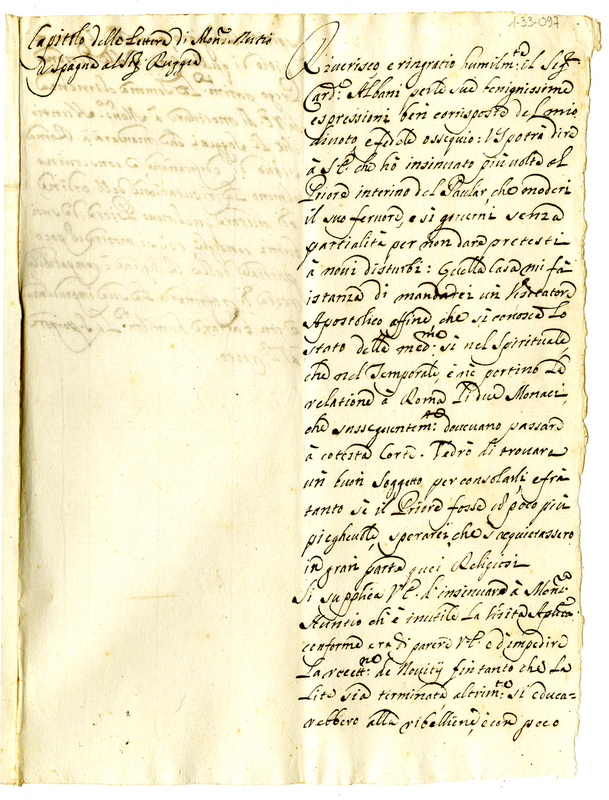 1-33-097
Capitolo delle Lettere di Mons.r Nutio
di Spagna al Sig.r Ruggia
Riverisco e ringratio humilm.te il Sig.r
Card.e Albani per le sue benignissime
espressioni ben corrisposte del mio
divoto, e fedele ossequio: V.S. potrà dire
à S.E. che hò insinuato più volte al
Priore interino del Paular, che moderi
il suo fervore, e si governi senza
partialità, per non dare pretesti
à novi disturbi: Quella Casa mi fà
istanza di mandarci un Visitatore
Apostolico affine che si conosca lo
stato della med.ma si nel Spirituale,
che nel Temporale, e ne portino la
relatione à Roma li due Monaci,
che susseguentem.te dovevano passare
à cotesta Corte. Vedrò di trovare
un buon Soggetto per consolarli, e frà
tanto se il Priore fosse un poco più
pieghevole, sperarei, che s'acquietassero
in gran parte quei Religiosi
Si supplica V.E. d'insinuare à Mons.r
Nuntio ch'è inutile la Visita Aplica
conforme era di parere V.E. e d'impedire
la recett.ne de Novitij fin tanto che la
Lite sia terminata, altrim.te si educa-
rebbero alla ribellione, e con poco